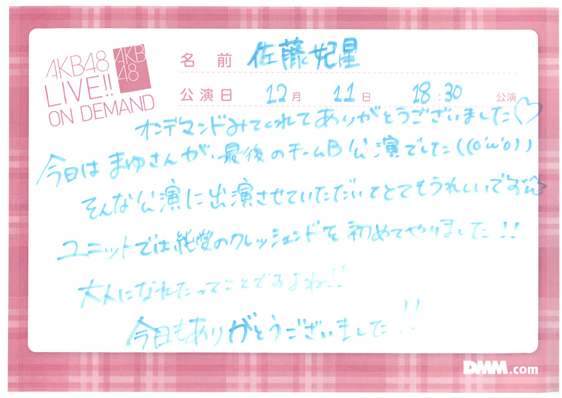 AKB48
LIVE!!
ON DEMAND
AKB
48
名前 佐藤妃星
公演日 12月 11日 18:30 公演
オンデマンドみてくれてありがとうございました♡
今日はまゆさんが、最後のチームB公演でした((o'ω'o))
そんな公演に出演させていただいてとてもうれしいです
ユニットでは純愛のクレッシェンドを初めてやりました!!
大人になれたってことですよね!!
今日もありがとうございました!!
DMM.com